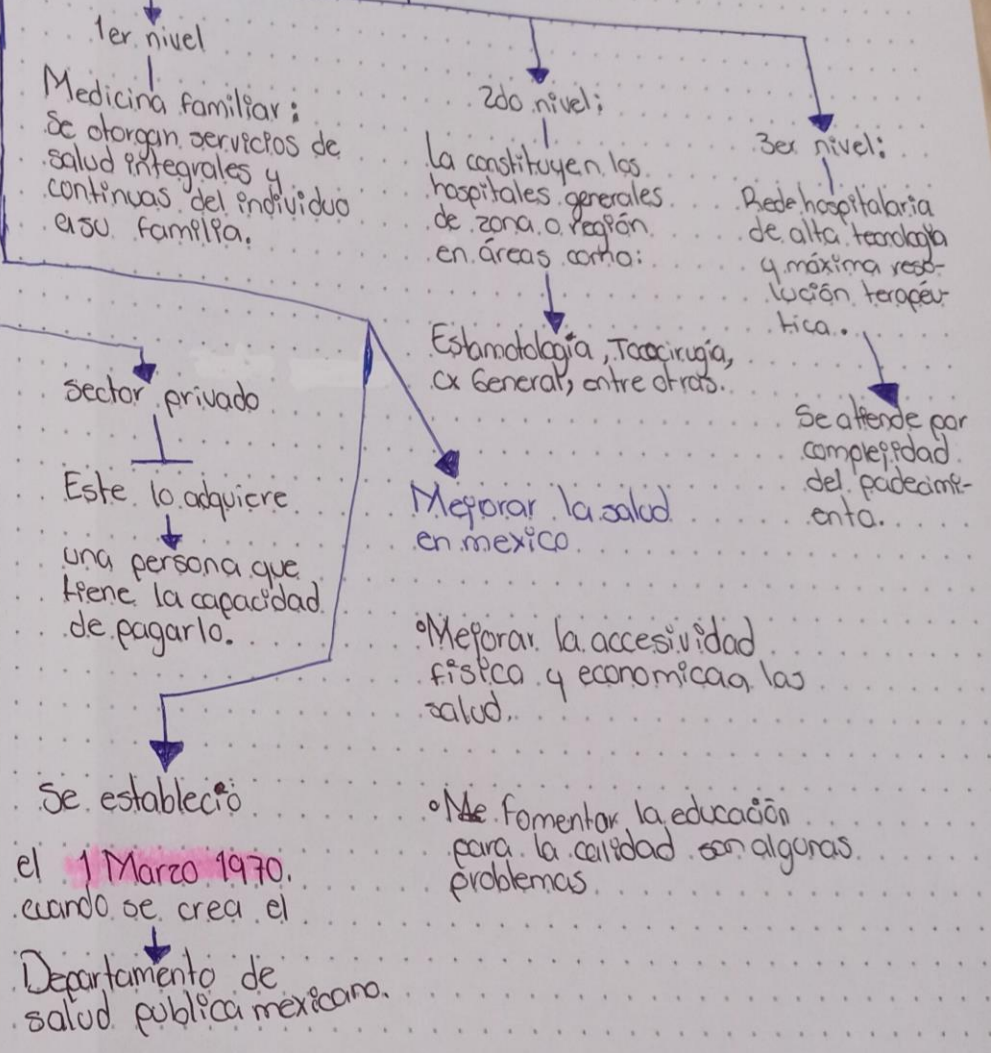 1er nivel
Medicina familiar:
Se otorgan servicios de
salud integrales y
continuas del individuo
a su familia.
2do nivel:
La constituyen los
hospitales generales
de zona o región
en áreas como:
Estamotología, Tococirugía,
cx General, entre otros.
3er nivel:
Rede hospitalaria
de alta tecnología
y máxima reso-
lución terapéu-
tica.
Se atiende por
complejidad
del padecimi-
ento.
sector privado
Este lo adquiere
una persona que
tiene la capacidad
de pagarlo.
Mejorar la salud
en mexico
°Mejorar la accesividad
física y economicaa las
salud.
°Me fomentar la educación
para la calidad son algunas
problemas
Se estableció
el 1 Marzo 1970.
cuando se crea el
Departamento de
salud publica mexicano.